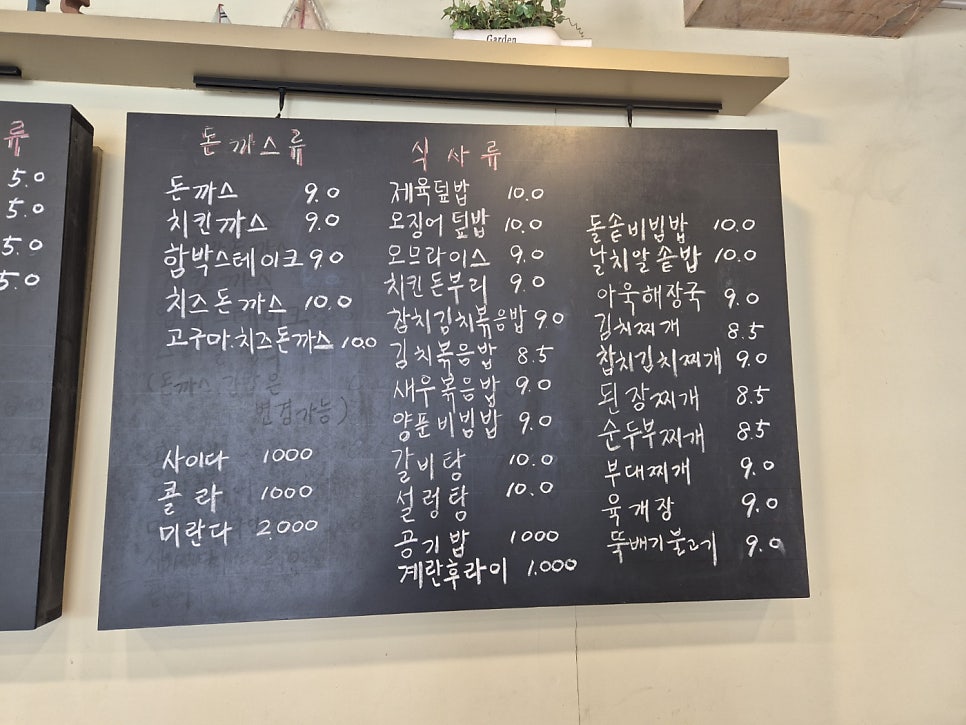 Garden
류
5.0
5.0
5.0
5.0
돈까스류
돈까스 9.0
치킨까스 9.0
함박스테이크 9.0
치즈돈까스 10.0
고구마.치즈돈까스 10.0
변경가능)
사이다 1000
콜라 1000
미란다 2.000
식사류
제육덮밥 10.0
오징어덮밥 10.0
오므라이스 9.0
치킨돈부리 9.0
참치김치볶음밥 9.0
김치볶음밥 8.5
새우볶음밥 9.0
양푼비빔밥 9.0
갈비탕 10.0
설렁탕 10.0
공기밥 1000
계란후라이 1.000
돌솥비빔밥 10.0
날치알솥밥 10.0
아욱해장국 9.0
김치찌개 8.5
참치김치찌개 9.0
된장찌개 8.5
순두부찌개 8.5
부대찌개 9.0
육개장 9.0
뚝배기불고기 9.0